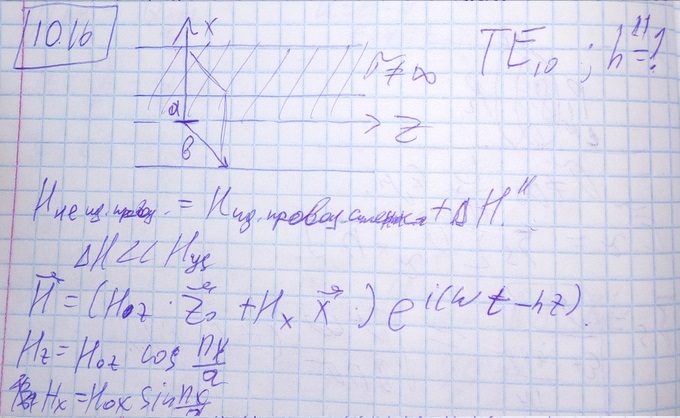 10.16
x
TE₁₀ ; h''=?
σ≠∞
a
z
b
H не ид. провод. = H ид. провод. стенка + ΔH
ΔH << H ид
H⃗ = (H₀z · z⃗₀ + Hx x⃗ ) e^{i(ωt - hz)}.
Hz = H₀z cos πx/a
Hx = H₀x sin πx/a